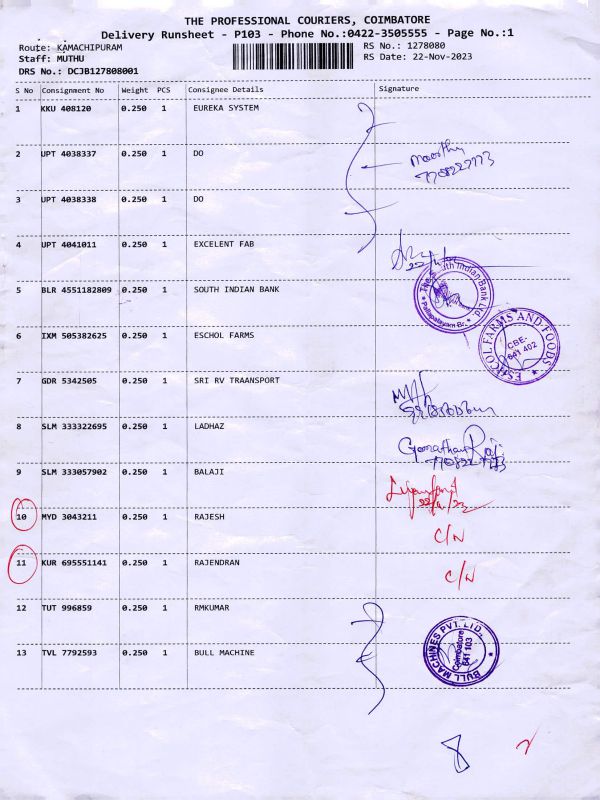 THE PROFESSIONAL COURIERS, COIMBATORE
Delivery Runsheet - P103 - Phone No.:0422-3505555 - Page No.:1
Route: KAMACHIPURAM
RS No.: 1278080
Staff: MUTHU
RS Date: 22-Nov-2023
DRS No.: DCJB127808001
S No Consignment No Weight PCS Consignee Details Signature
1 KKU 408120 0.250 1 EUREKA SYSTEM
2 UPT 4038337 0.250 1 DO
3 UPT 4038338 0.250 1 DO
4 UPT 4041011 0.250 1 EXCELENT FAB
5 BLR 4551182809 0.250 1 SOUTH INDIAN BANK
The South Indian Bank Ltd
Pallapalayam Br.
6 IXM 505382625 0.250 1 ESCHOL FARMS
ESHCOL FARMS AND FOODS
CBE-
641 402
7 GDR 5342505 0.250 1 SRI RV TRAANSPORT
8 SLM 333322695 0.250 1 LADHAZ
9 SLM 333057902 0.250 1 BALAJI
10 MYD 3043211 0.250 1 RAJESH
C/N
11 KUR 695551141 0.250 1 RAJENDRAN
C/N
12 TUT 996859 0.250 1 RMKUMAR
13 TVL 7792593 0.250 1 BULL MACHINE
BULL MACHINES PVT. LTD.,
Coimbatore
641 103
8